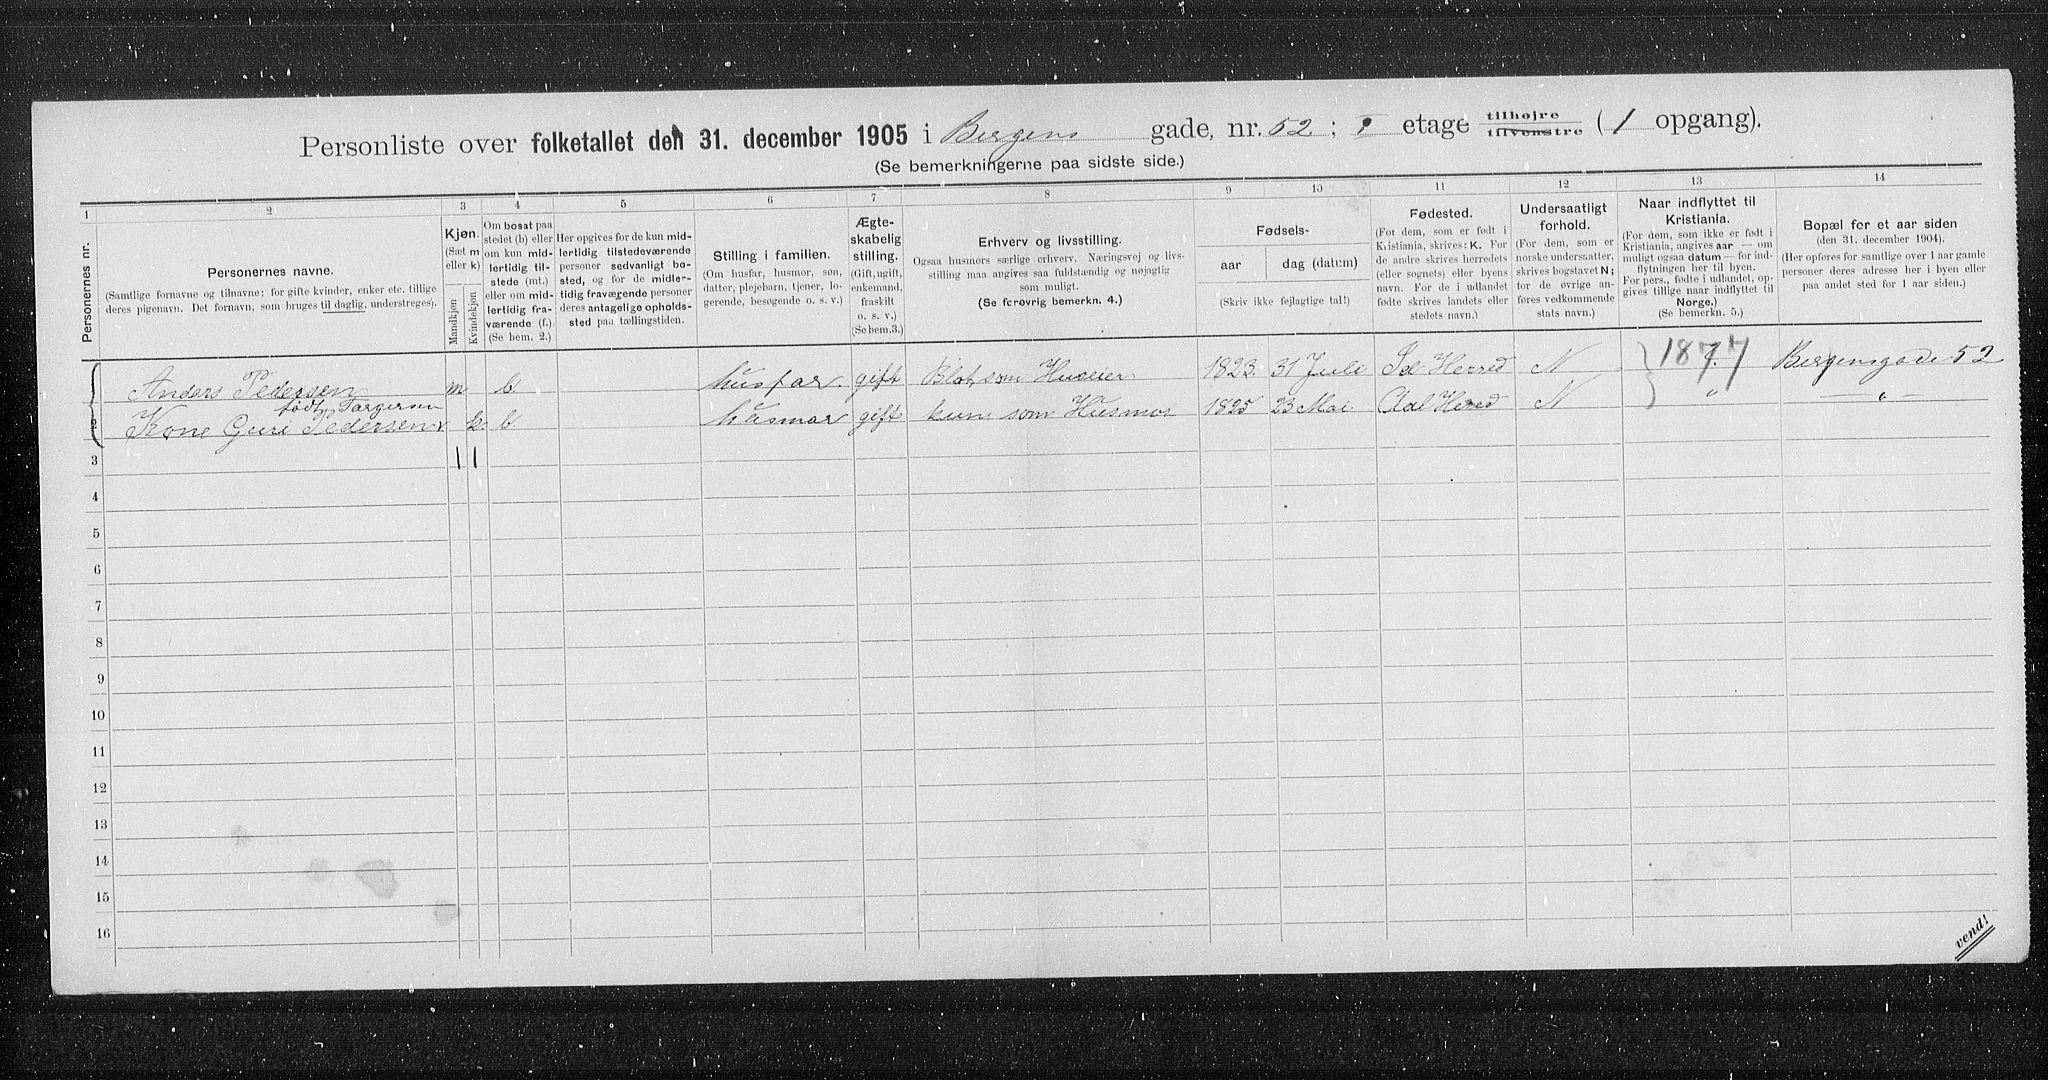 Personliste over folketallet den 31. december 1905 i Bergens gade, nr. 52; etage tilhøjre tilvenstre (1 opgang).
(Se bemerkningerne paa sidste side.)
1 2 3 4 5 6 7 8 9 10 11 12 13 14
Personernes nr.
Personernes navne.
(Samtlige fornavne og tilnavne; for gifte kvinder, enker etc. tillige
deres pigenavn. Det fornavn, som bruges til daglig, understreges).
Kjøn.
(Sæt m
eller k)
Mandkjøn
Kvindekjøn
Om bosat paa
stedet (b) eller
om kun mid-
lertidig til-
stede (mt.)
eller om mid-
lertidig fra-
værende (f.)
(Se bem. 2.)
Her opgives for de kun mid-
lertidig tilstedeværende
personer sedvanlig bo-
sted, og for de midler-
tidig fraværende personer
deres antagelige opholds-
sted paa tællingstiden.
Stilling i familien.
(Om husfar, husmor, søn,
datter, plejebarn, tjener, lo-
gerende, besøgende o. s. v.)
Ægte-
skabelig
stilling.
(Gift, ugift,
enkemand,
fraskilt
o. s. v.)
(Se bem.3.)
Erhverv og livsstilling.
Ogsaa husmors særlige erhverv. Næringsvej og livs-
stilling maa angives saa fuldstændig og nøjagtig
som muligt.
(Se forøvrig bemerkn. 4.)
Fødsels-
aar
dag (datum)
(Skriv ikke fejlagtige tal!)
Fødested.
(For dem, som er født i
Kristiania, skrives: K. For
de andre skrives herredets
(eller sognets) eller byens
navn. For de i udlandet
fødte skrives landets eller
stedets navn.)
Undersaatligt
forhold.
(For dem, som er
norske undersaatter,
skrives bogstavet N;
for de øvrige an-
føres vedkommende
stats navn.)
Naar indflyttet til
Kristiania.
(For dem, som ikke er født i
Kristiania, angives aar — om
muligt ogsaa datum — for ind-
flytningen her til byen.
For pers., fødte i udlandet, op-
gives tillige naar indflyttet til
Norge.)
(Se bemerkn. 5.)
Bopæl for et aar siden
(den 31. december 1904).
(Her opføres for samtlige over 1 aar gamle
personer deres adresse her i byen eller
paa andet sted for 1 aar siden.)
Anders Pedersen m b husfar. gift Blot som Huseier 1823. 31 Juli Herred N 1877 Bergensgade 52
født Torgersen
Kone Guri Pedersen k. b husmor gift kun som Husmor 1825 23 Mai Aal Herred N " — " —
3 1 1
4
5
6
7
8
9
10
11
12
13
14
15
16
vend!